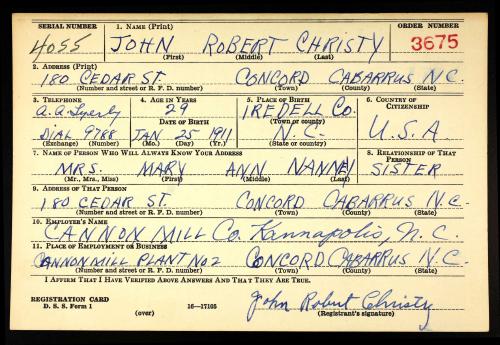 SERIAL NUMBER 1. NAME (Print) ORDER NUMBER
4055 JOHN ROBERT CHRISTY 3675
(First) (Middle) (Last)
2. ADDRESS (Print)
180 CEDAR ST. CONCORD CABARRUS N.C.
(Number and street or R. F. D. number) (Town) (County) (State)
3. TELEPHONE 4. AGE IN YEARS 5. PLACE OF BIRTH 6. COUNTRY OF CITIZENSHIP
A. A. Lyerly 29 IREDELL Co.
DATE OF BIRTH (Town or county)
DIAL 9788 JAN 25 1911 N.C. U.S.A
(Exchange) (Number) (Mo.) (Day) (Yr.) (State or country)
7. NAME OF PERSON WHO WILL ALWAYS KNOW YOUR ADDRESS 8. RELATIONSHIP OF THAT PERSON
MRS. MARY ANN NANNEY SISTER
(Mr., Mrs., Miss) (First) (Middle) (Last)
9. ADDRESS OF THAT PERSON
180 CEDAR ST. CONCORD CABARRUS N.C.
(Number and street or R. F. D. number) (Town) (County) (State)
10. EMPLOYER'S NAME
CANNON MILL Co. Kannapolis, N.C.
11. PLACE OF EMPLOYMENT OR BUSINESS
CANNON MILL PLANT No 2 CONCORD CABARRUS N.C.
(Number and street or R. F. D. number) (Town) (County) (State)
I AFFIRM THAT I HAVE VERIFIED ABOVE ANSWERS AND THAT THEY ARE TRUE.
REGISTRATION CARD
D. S. S. Form 1 16—17105 John Robert Christy
(over) (Registrant's signature)